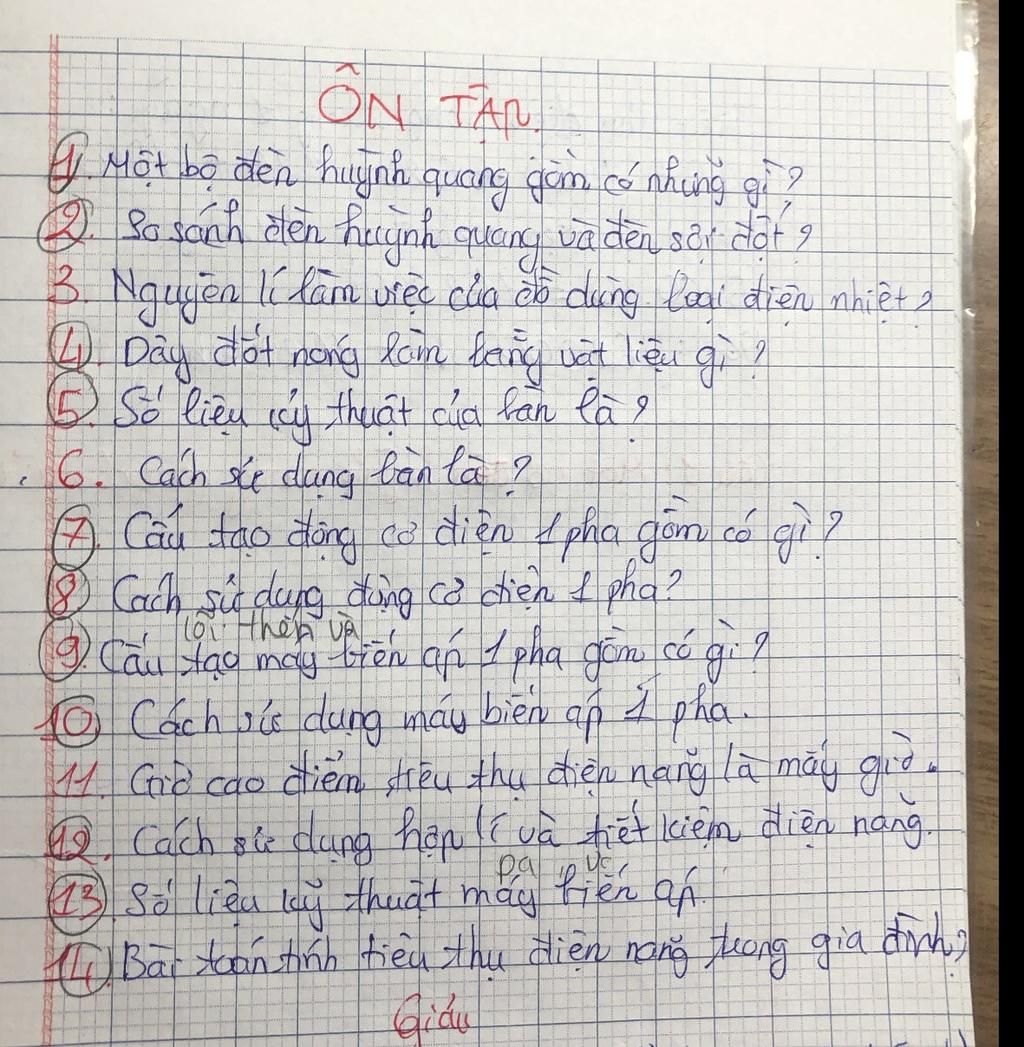 ÔN TẬP.
1. Một bộ đèn huỳnh quang gồm có những gì?
2. So sánh đèn huỳnh quang và đèn sợi đốt?
3. Nguyên lí làm việc của đồ dùng loại điện nhiệt?
4. Dây đốt nóng làm bằng vật liệu gì?
5. Số liệu kỹ thuật của bàn là?
6. Cách sử dụng bàn là?
7. Cấu tạo động cơ điện 1 pha gồm có gì?
8. Cách sử dụng động cơ điện 1 pha?
lõi thép và
9. Cấu tạo máy biến áp 1 pha gồm có gì?
10. Cách sử dụng máy biến áp 1 pha.
11. Giờ cao điểm tiêu thụ điện năng là mấy giờ.
12. Cách sử dụng hợp lí và tiết kiệm điện năng.
13. Số liệu kỹ thuật máy biến áp.
14. Bài toán tính tiêu thụ điện năng trong gia đình?